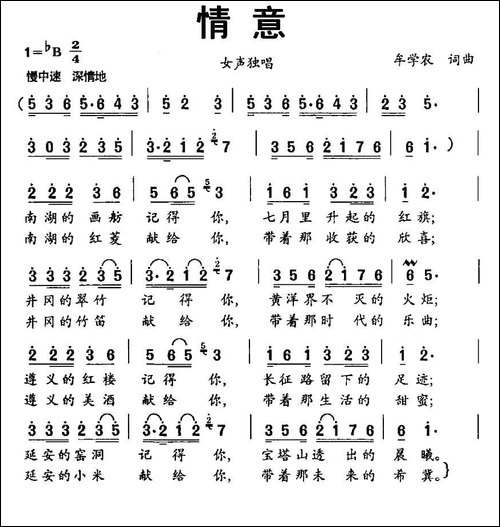 情意
1=♭B 2/4
女声独唱
牟学农 词曲
慢中速 深情地
(5 3 6 5·6 4 3 | 5 2 3 | 5 3 6 5·6 4 3 | 5·3 |
3 0 3 2 3 5 | 3·2 1 2 7 | 3 5 6 2 1 7 6 | 6 1· )
2 2 2 3 6 | 5 6 5 3 | 1 6 1 3 2 3 | 1 2· |
南湖的画舫 记得你, 七月里升起的红旗;
南湖的红菱 献给你, 带着那收获的欣喜;
3 3 3 2 3 5 | 3·2 1 2 7 | 3 5 6 2 1 7 6 | 6 5· |
井冈的翠竹 记得你, 黄洋界不灭的火炬;
井冈的竹笛 献给你, 带着那时代的乐曲;
2 2 2 3 6 | 5 6 5 3 | 1 6 1 3 2 3 | 1 2· |
遵义的红楼 记得你, 长征路留下的足迹;
遵义的美酒 献给你, 带着那生活的甜蜜;
3 3 3 2 3 5 | 3·2 1 2 7 | 3 5 6 2 1 7 6 | 6 1· |
延安的窑洞 记得你, 宝塔山透出的晨曦。
延安的小米 献给你, 带着那未来的希冀。